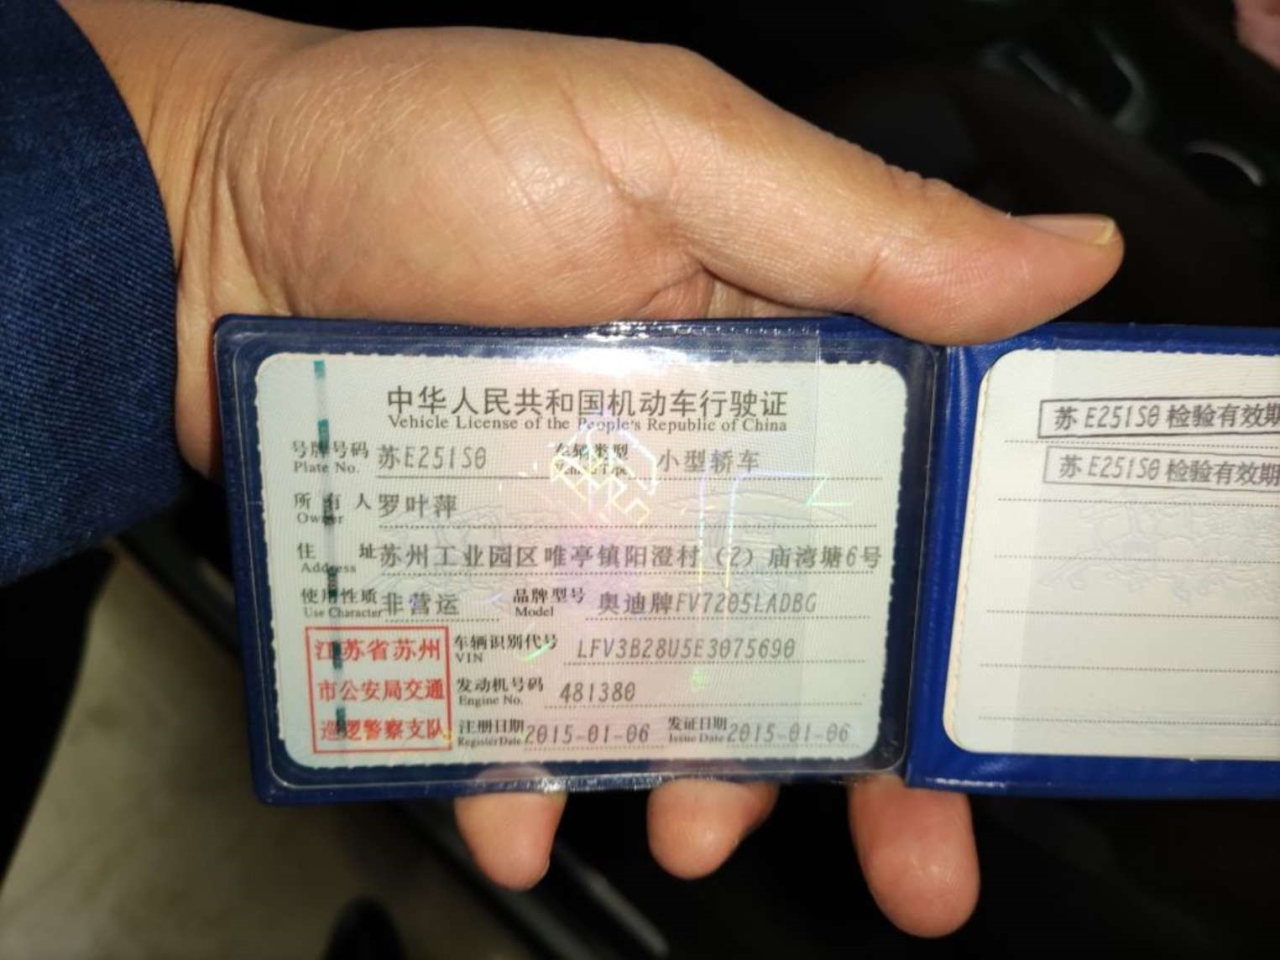 中华人民共和国机动车行驶证
Vehicle License of the People's Republic of China
号牌号码 苏E251S0 车辆类型 小型轿车
Plate No.
所有人 罗叶萍
Owner
住址 苏州工业园区唯亭镇阳澄村（2）庙湾塘6号
Address
使用性质 非营运 品牌型号 奥迪牌FV7205LADBG
Use Character Model
江苏省苏州
市公安局交通
巡逻警察支队
车辆识别代号 LFV3B28U5E3075690
VIN
发动机号码 481380
Engine No.
注册日期 2015-01-06 发证日期 2015-01-06
Register Date Issue Date
苏E251S0检验有效期
苏E251S0检验有效期